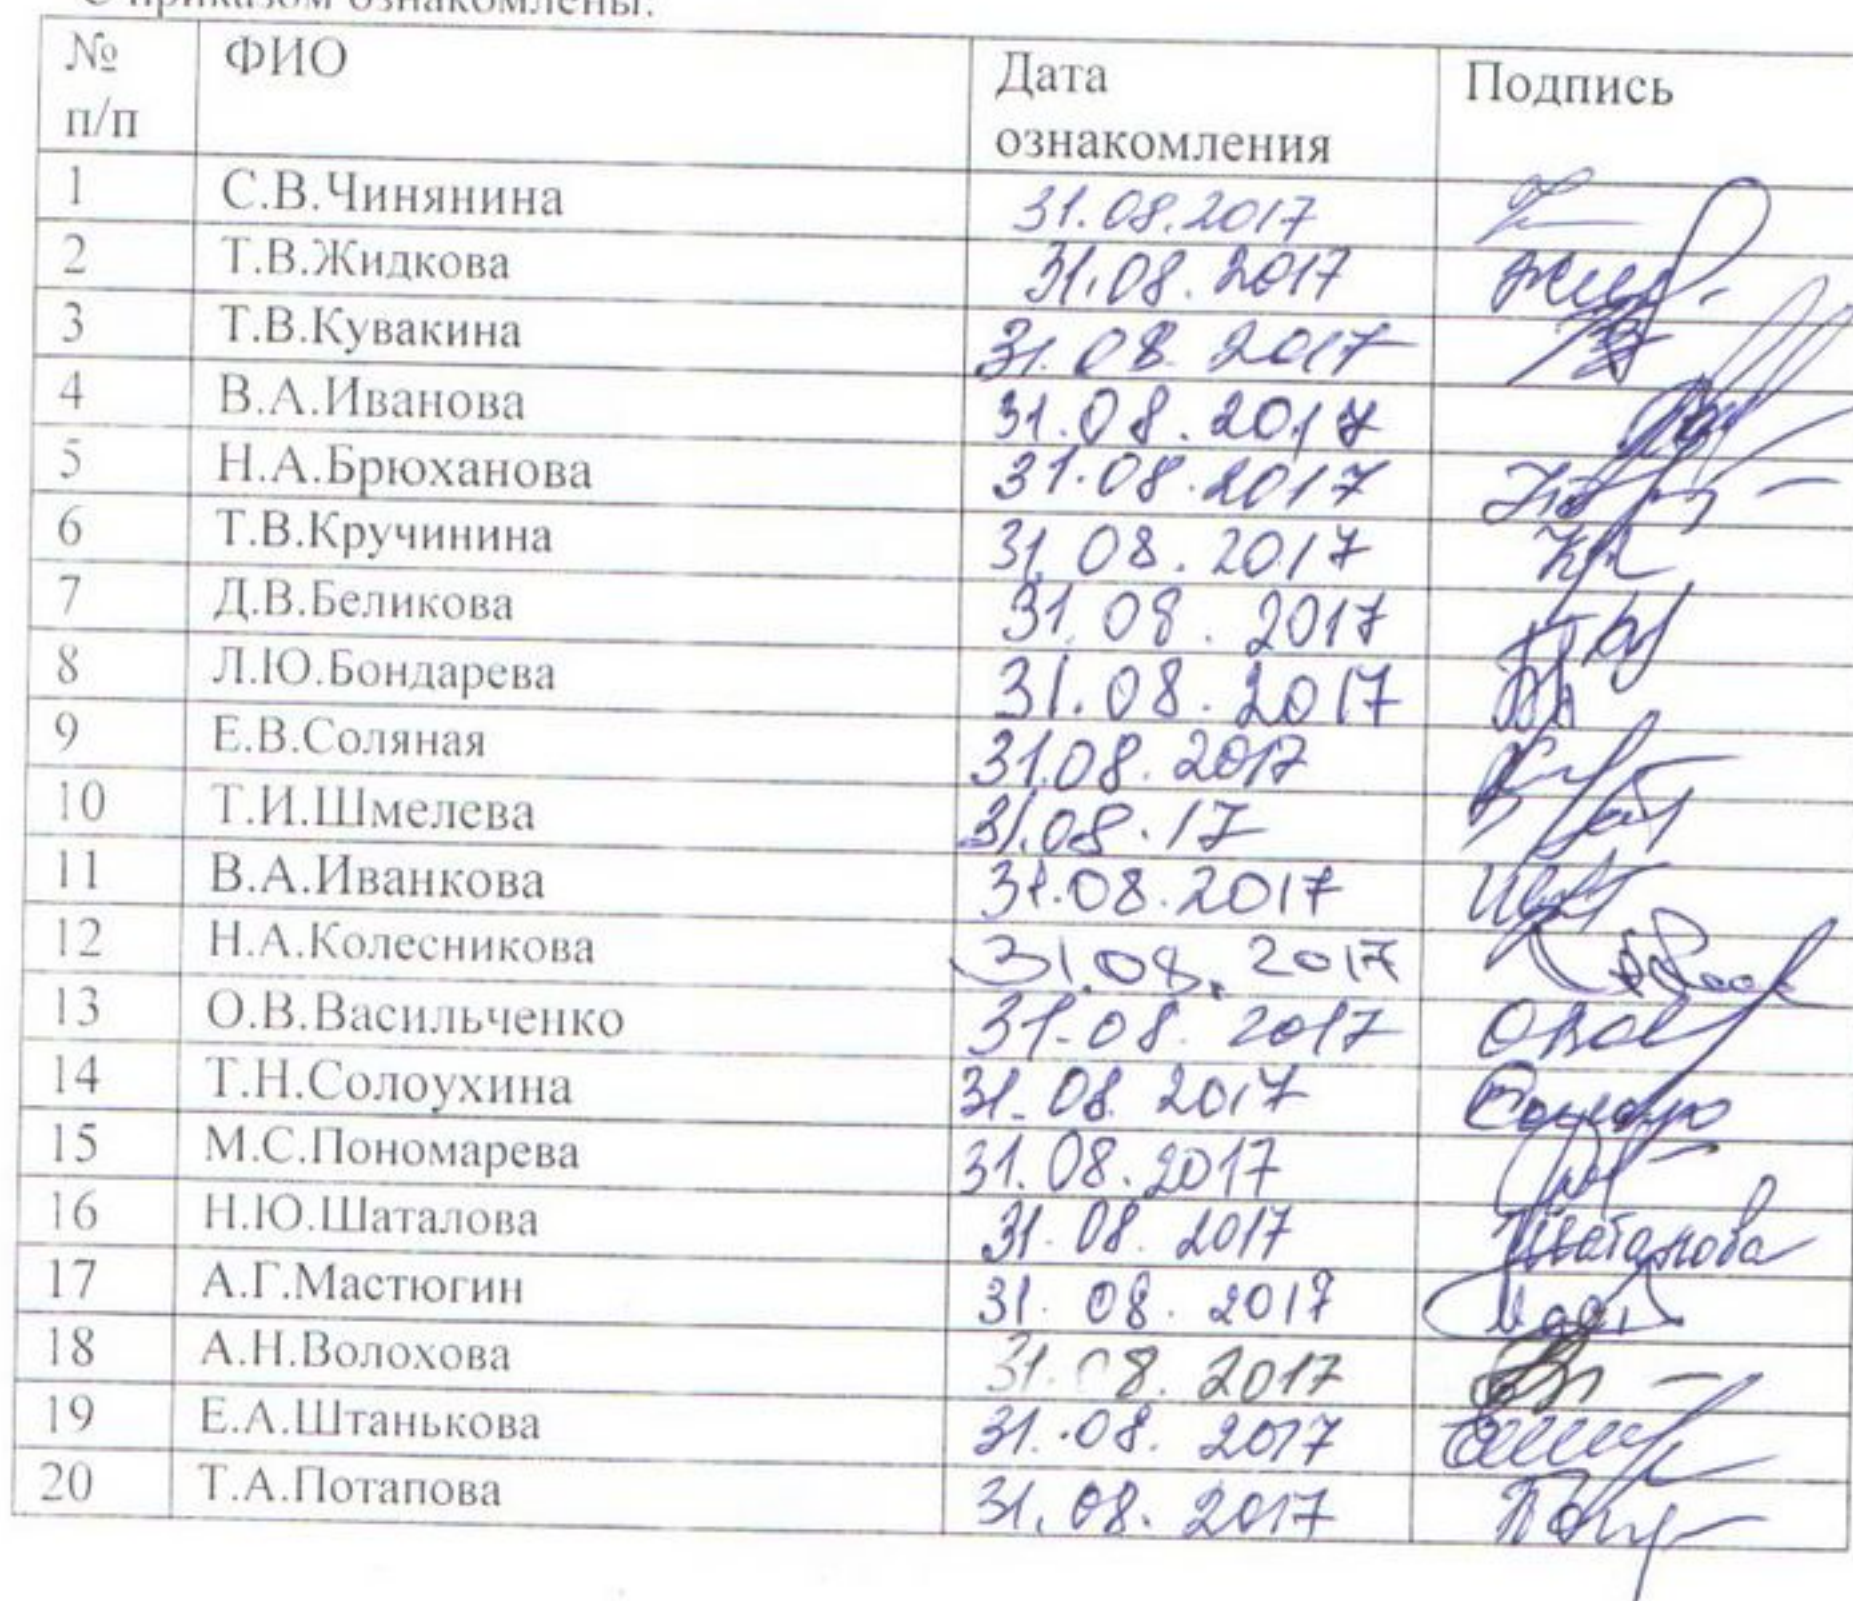 С приказом ознакомлены:
№ п/п ФИО Дата ознакомления Подпись
1 С.В.Чинянина 31.08.2017
2 Т.В.Жидкова 31.08.2017
3 Т.В.Кувакина 31.08.2017
4 В.А.Иванова 31.08.2017
5 Н.А.Брюханова 31.08.2017
6 Т.В.Кручинина 31.08.2017
7 Д.В.Беликова 31.08.2017
8 Л.Ю.Бондарева 31.08.2017
9 Е.В.Соляная 31.08.2017
10 Т.И.Шмелева 31.08.17
11 В.А.Иванкова 31.08.2017
12 Н.А.Колесникова 31.08.2017
13 О.В.Васильченко 31.08.2017
14 Т.Н.Солоухина 31.08.2017
15 М.С.Пономарева 31.08.2017
16 Н.Ю.Шаталова 31.08.2017 Шаталова
17 А.Г.Мастюгин 31.08.2017
18 А.Н.Волохова 31.08.2017
19 Е.А.Штанькова 31.08.2017
20 Т.А.Потапова 31.08.2017